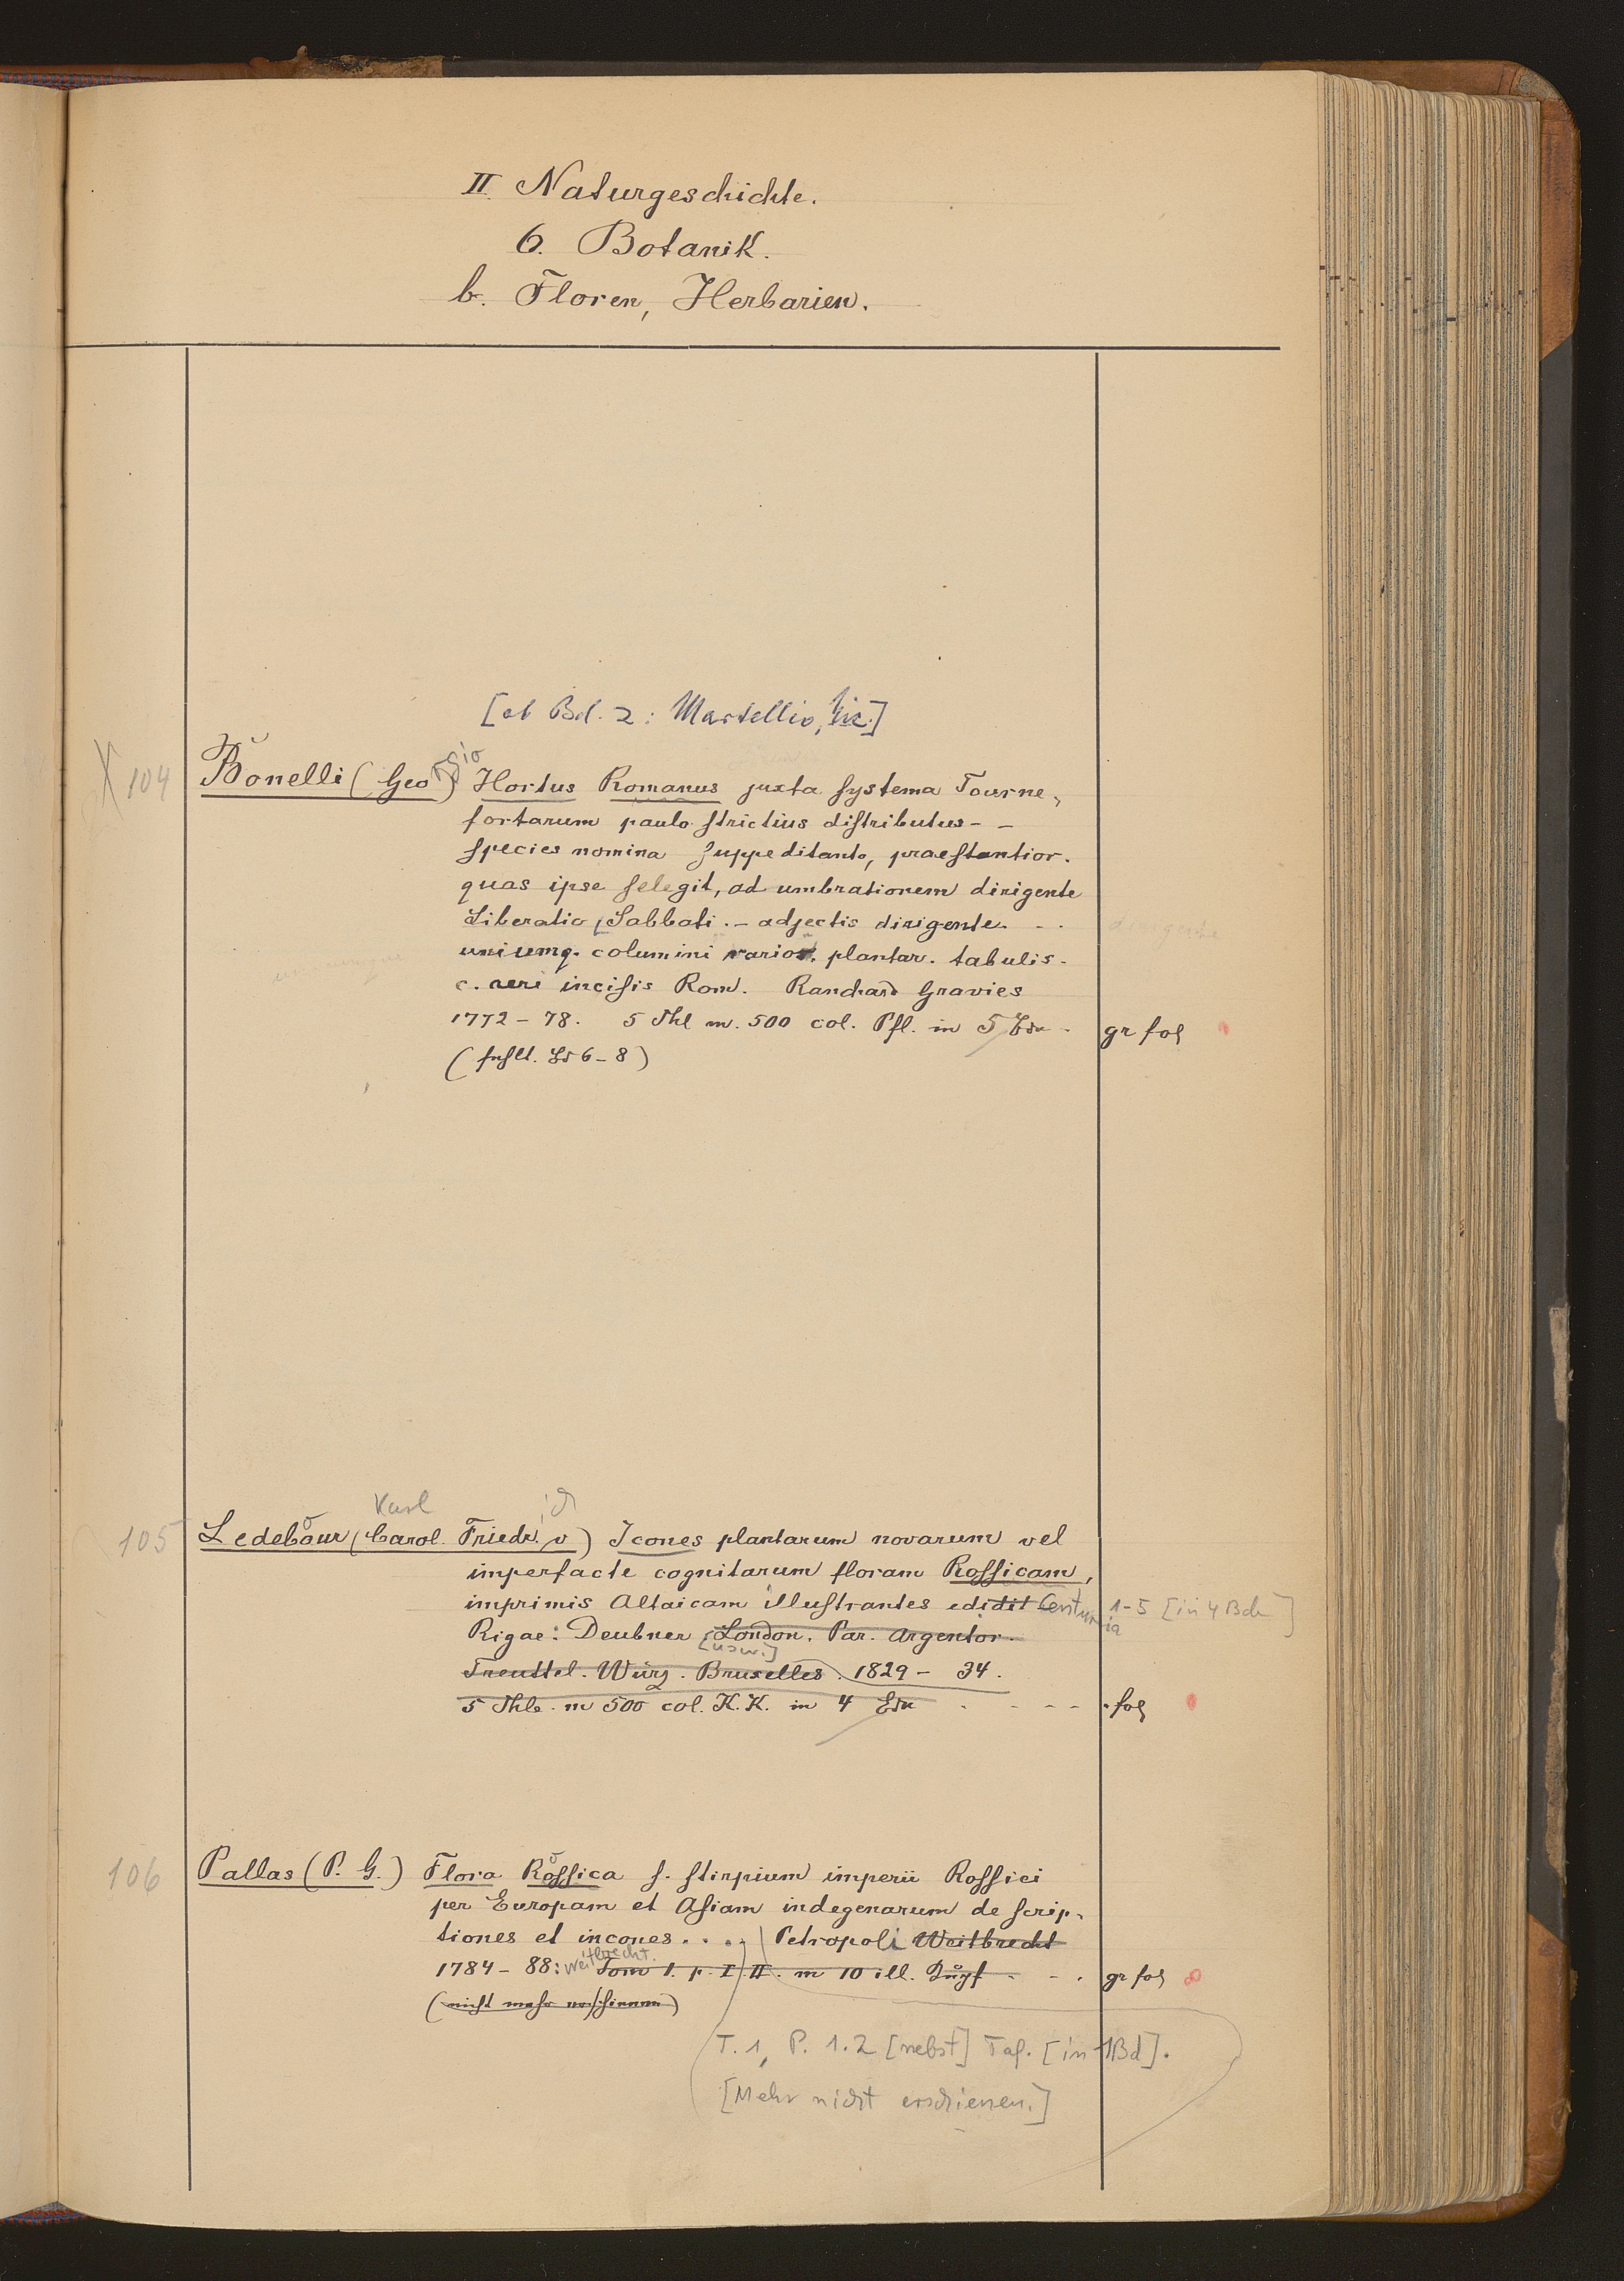 II. Naturgeschichte.
6. Botanik.
b. Floren, Herbarien.
[ab Bd. 2: Martellio, Nic.]
X 104 Bonelli (Georgio) Hortus Romanus juxta systema Tourne-
fortarum paulo strictius distributus - -
species nomina suppeditante, praestantior.
quas ipse selegit, ad umbrationem dirigente
Liberatio Sabbati. - adjectis dirigente. . .
uniumq. columini varior. plantar. tabulis.
c. aeri incisis Rom. Ranchard Gravies
1772 - 78. 5 Thl m. 500 col. Pfl. in 5 Bdn. gr fol
(fehlt. Bd 6 - 8)
Karl
105 Ledebour (Carol. Friedr. v) Icones plantarum novarum vel
imperfacte cognitarum floram Rossicam,
imprimis Altaicam illustrantes edidit Centuria 1-5 [in 4 Bdn]
Rigae: Deubner London. Par. Argentor.
[usw.]
Treuttel. Würz. Bruxelles. 1829 - 34.
5 Thle. m 500 col. K.K. in 4 Bdn . - - - . fol
106 Pallas (P. G.) Flora Rossica s. stirpium imperii Rossici
per Europam et Asiam indegenarum descrip-
tiones et incones . . . . Petropoli Weitbrecht
1784 - 88: Weitbrecht. Tom 1. p. I. II. m 10 ill. Kupf . - . gr fol
(nicht mehr erschienen)
T. 1, P. 1.2 [nebst] Taf. [in 1 Bd].
[Mehr nicht erschienen.]